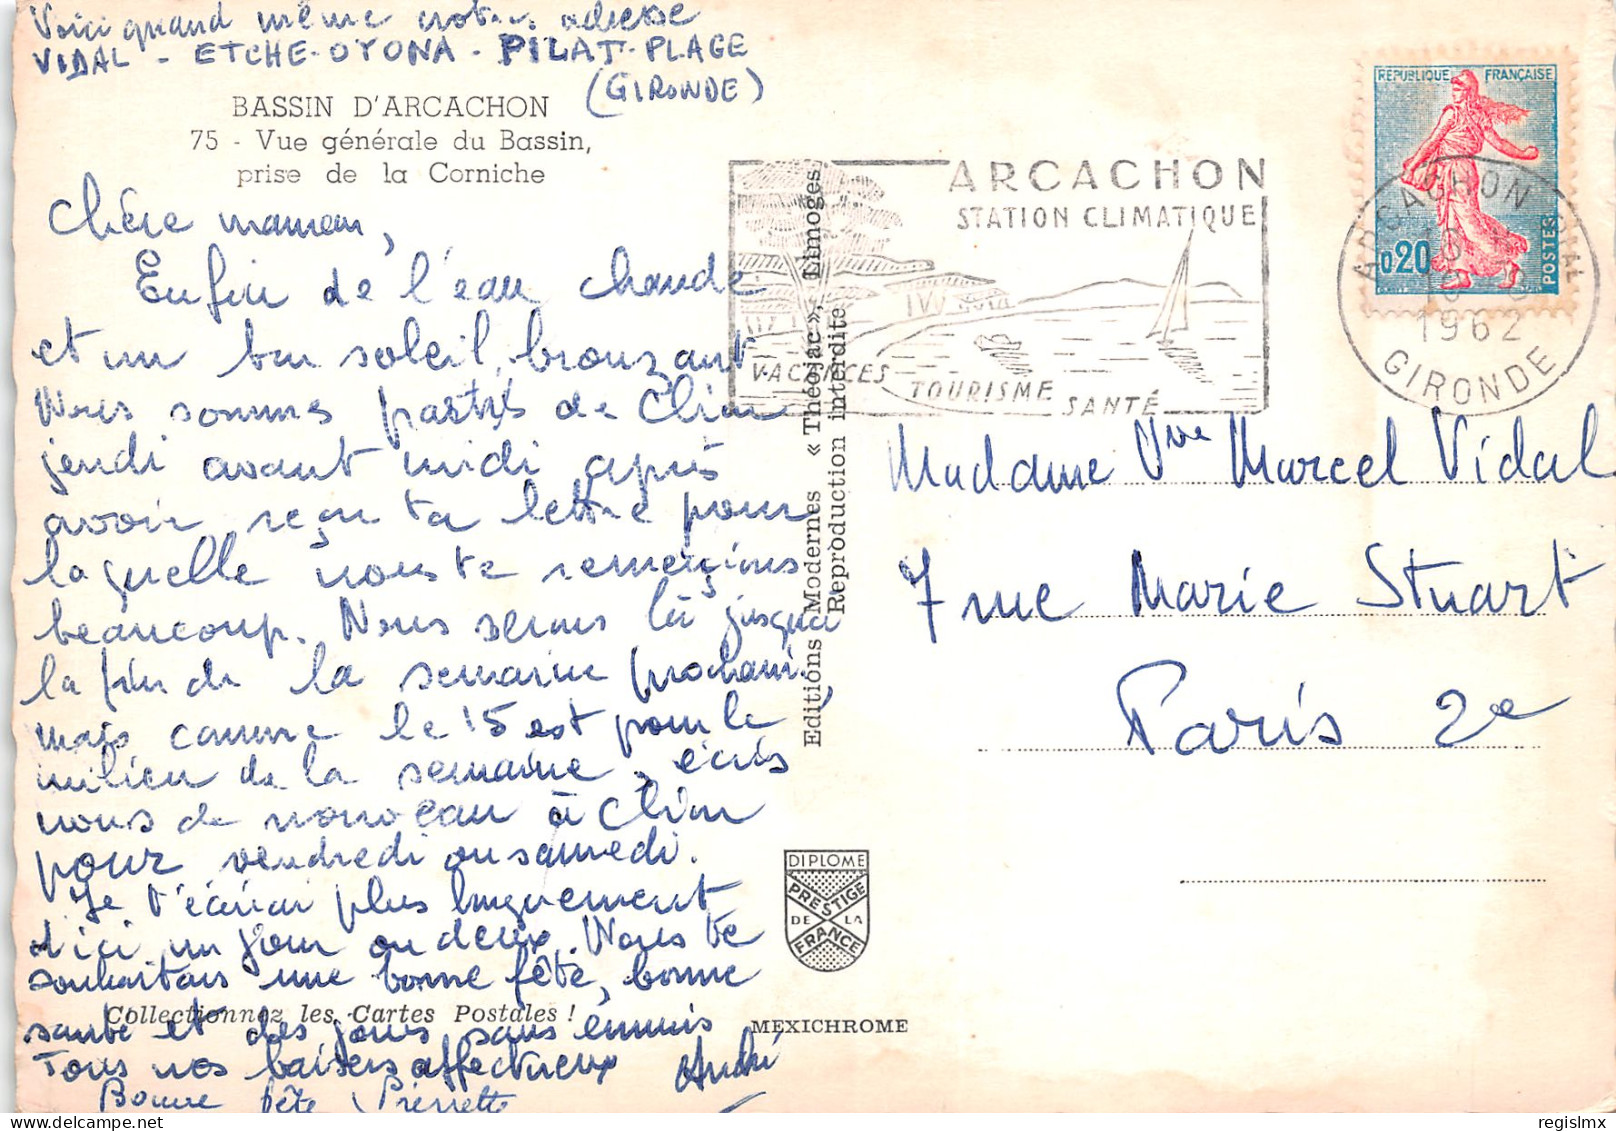 Voici quand même notre adresse
VIDAL - ETCHE-OYONA - PILAT-PLAGE
(GIRONDE)
BASSIN D'ARCACHON
75 - Vue générale du Bassin,
prise de la Corniche
Chère maman,
Enfin de l'eau chaude
et un bon soleil bronzant
Nous sommes partis de
jeudi avant midi après
avoir reçu ta lettre pour
laquelle nous te remercions
beaucoup. Nous serons là jusqu'à
la fin de la semaine prochaine,
mais comme le 15 est pour le
milieu de la semaine, écris
nous de nouveau à
pour vendredi ou samedi.
Je t'écrirai plus longuement
d'ici un jour ou deux. Nous te
souhaitons une bonne fête, bonne
santé et des jours sans ennuis
Tous nos baisers affectueux André
Bonne fête Pierrette
Collectionnez les Cartes Postales !
Editions Modernes « Théojac », Limoges
Reproduction interdite
DIPLOME
PRESTIGE
DE LA
FRANCE
MEXICHROME
ARCACHON
STATION CLIMATIQUE
VACANCES
TOURISME
SANTÉ
REPUBLIQUE FRANÇAISE
0,20
POSTES
ARCACHON PAL
1962
GIRONDE
Madame Vve Marcel Vidal
7 rue Marie Stuart
Paris 2e
regislmx